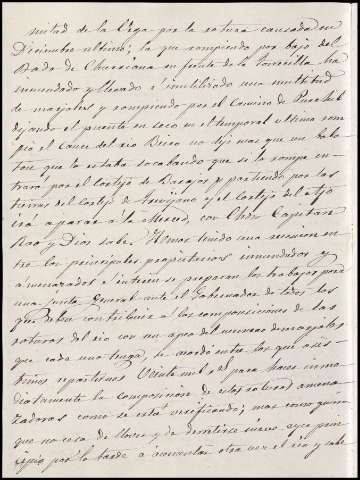 mitad de la Vega por la rotura causada en
Diciembre ultimo; la que rompiendo por bajo del
Vado de Churriana en frente de la Torrecilla ha
inundado y llevado é inutilizado una multitud
de marjales y rompiendo por el Camino de Purchil
dejando el puente en seco en el temporal ultimo rom
pio el Cauce del rio Beiro no dejó mas que un bala
ton que lo estaba socabando que si lo rompe en
trara por el Cortijo de Barajas y partiendo por las
tierras del Cortijo de y el Cortijo del
irá a parar á la Merced, con Chito Capitan
Rao y Dios sabe. Hemos tenido una reunion en
tre los principales propietarios inundados y
amenazados é interin se preparan los trabajos para
una Junta General ante el Gobernador de todos los
que deben contribuir á las composiciones de las
roturas del rio con un apeo del numero de marjales
que cada uno tenga, se acordo entre los que asis
timos repartirnos Veinte mil rs para hacer inme
diatamente la composicion de estas roturas amena
zadoras como se está verificando; mas como quiera
que no cesa de llover y de derretirse nieve ayer prin
cipió por la tarde á aumentar otra vez el rio y sabe